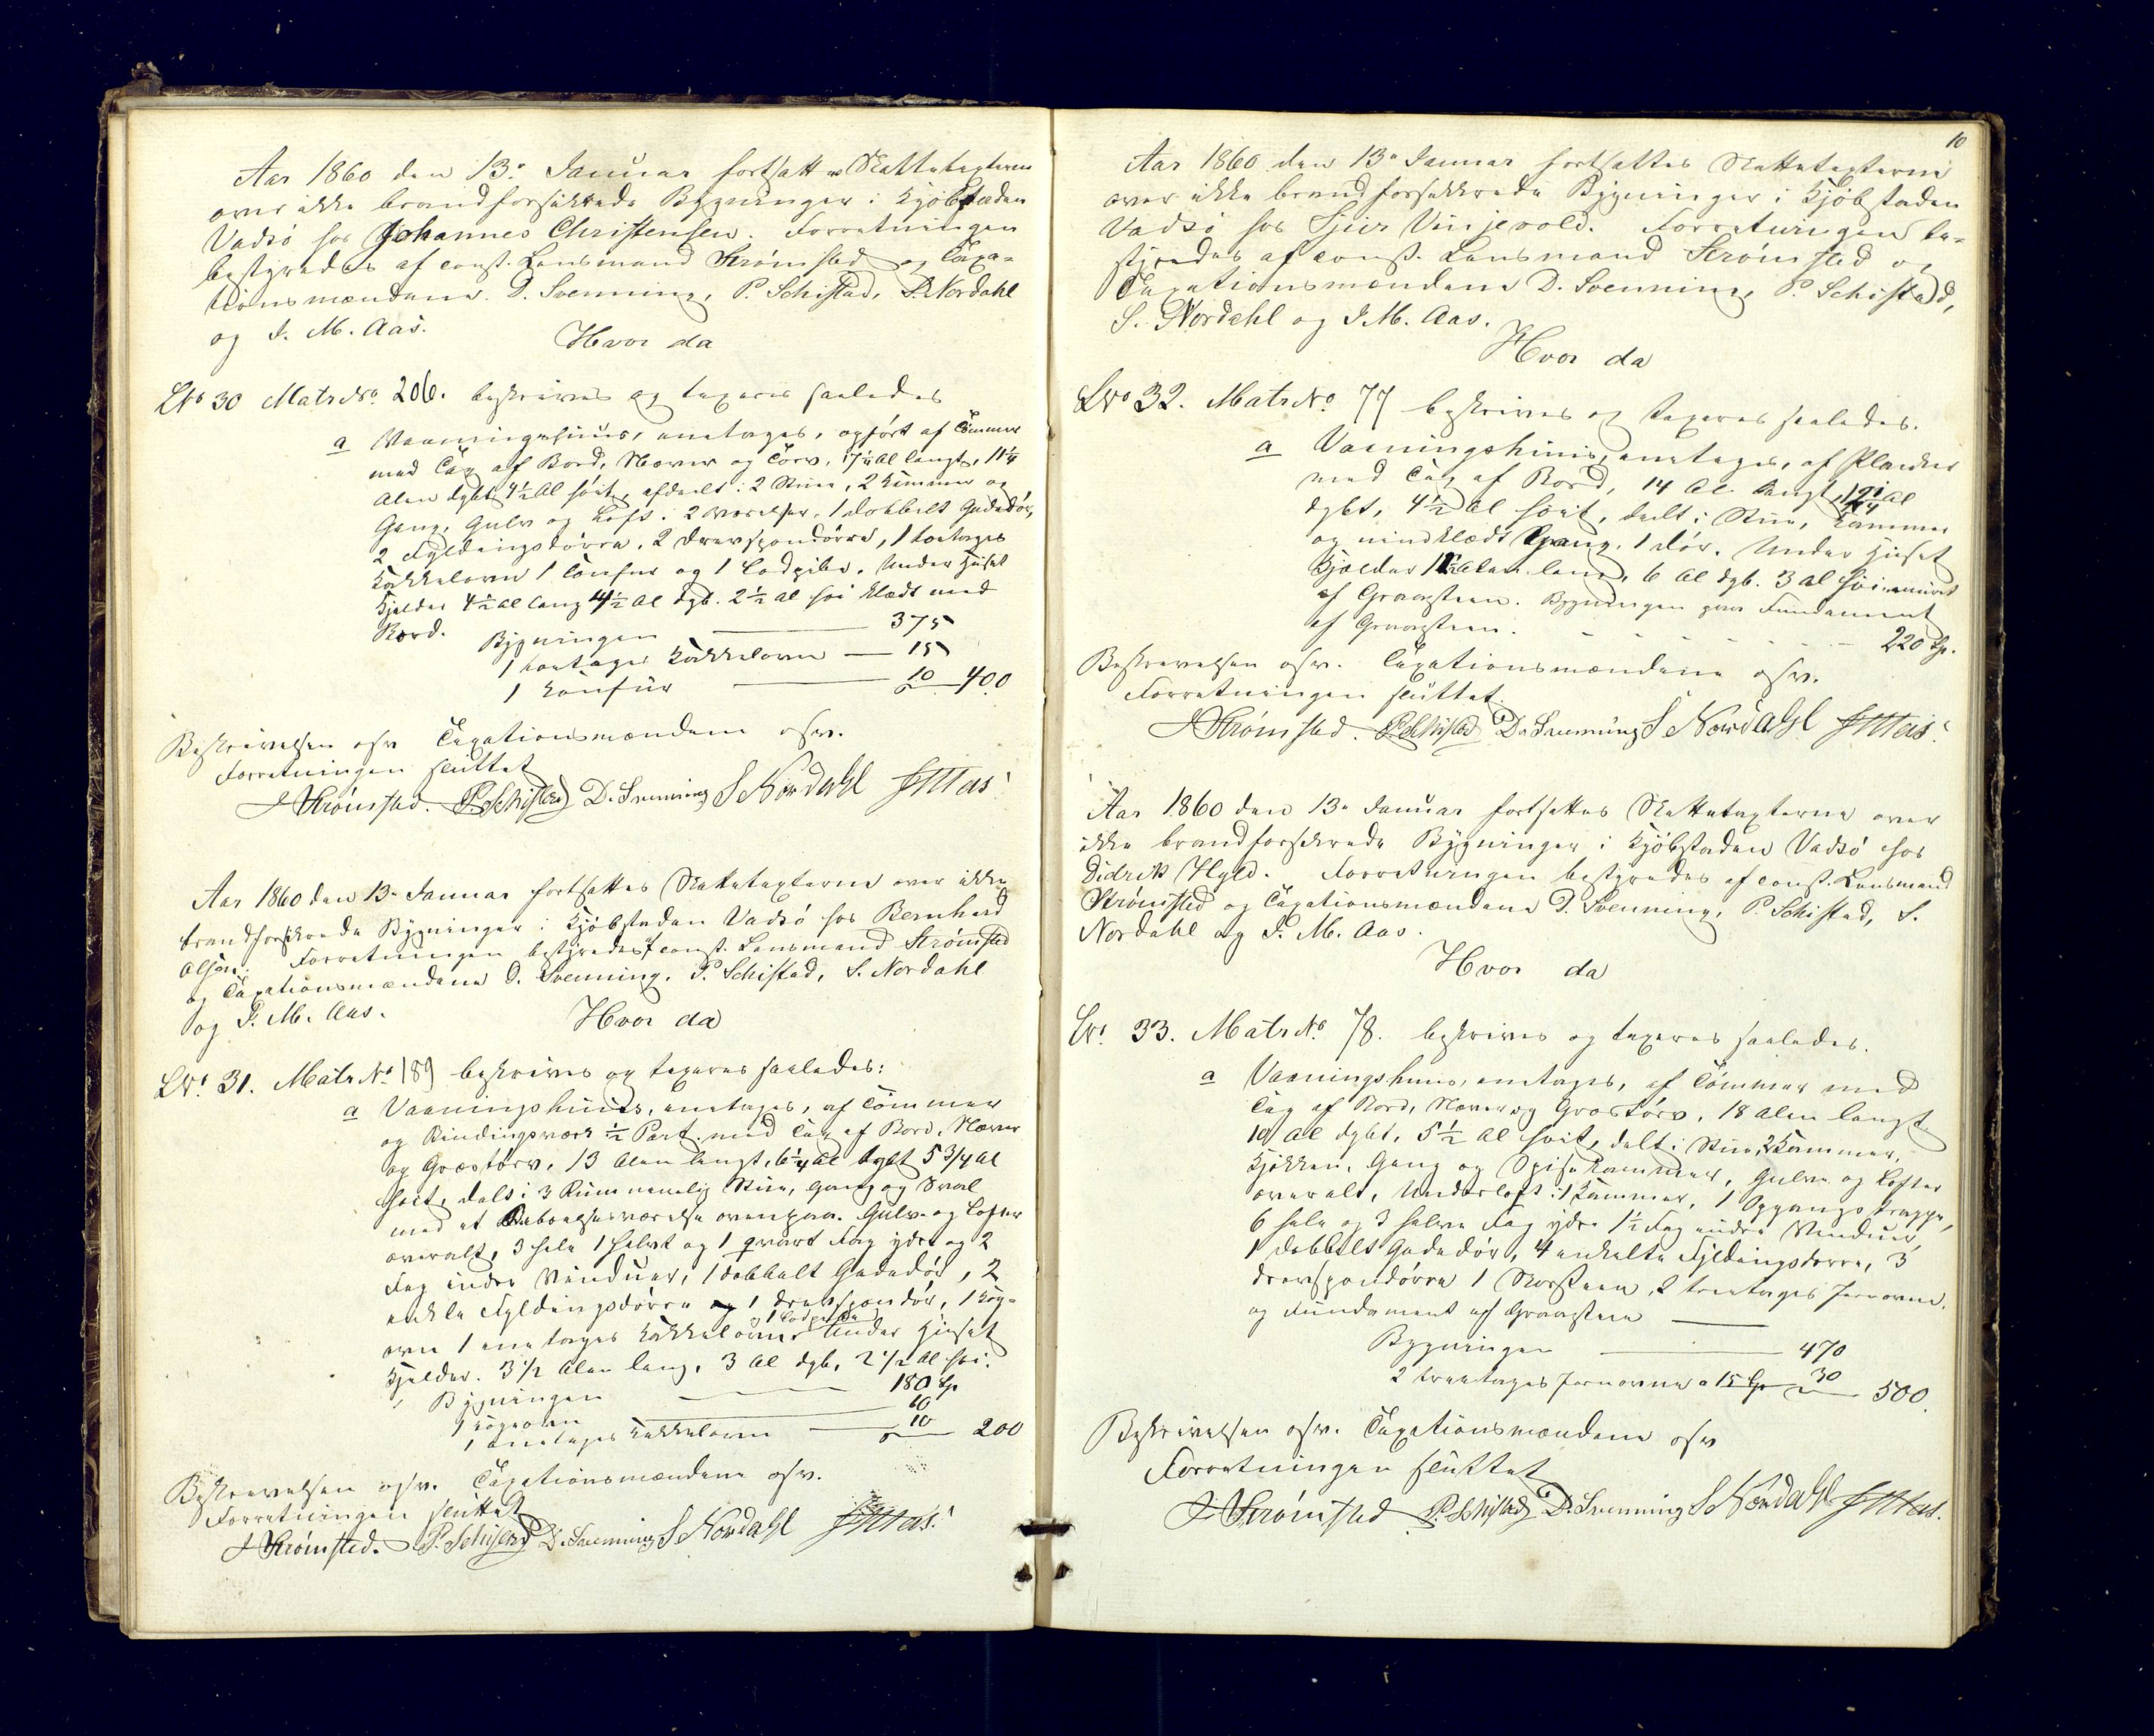 Aar 1860 den 13de Januar fortsattes Skattetaxterne
over ikke brandforsikkrede Bygninger i Kjøbstaden
Vadsø hos Johannes Christensen. Forretningen
bestyredes af const. Lensmand Strømsted og Taxa-
tionsmændene D. Svenning, P. Schistad, S. Nordahl
og I. M. Aas.
Hvor da
LNo 30 Matr No. 206. beskrives og taxeres saaledes
a Vaaningshuus, eenetages, opført af Tømmer
med Tag af Bord, Næver og Torv, 17¼ Al langt, 11¼
Alen dybt 4½ Al høit, afdeelt i 2 Stuer, 2 Kammer og
Gang, Gulv og Loft. 2 Værelser, 1 dobbelt Gadedør,
2 Fyldingsdørre, 2 Draespondørre, 1 toetages
Kakkelovn 1 Comfur og 1 . Under Huset
Kjelder 4½ Al lang 4½ Al dyb. 2½ Al høi klædt med
Bord.
Bygningen 375
1 toetages Kakkelovn 15
1 Comfur 10 400
Beskrivelsen osv Taxationsmændene osv.
Forretningen sluttet
J Strømsted. P. Schistad D. Svenning S Nordahl I M Aas
Aar 1860 den 13de Januar fortsattes Skattetaxterne over ikke
brandforsikrede Bygninger i Kjøbstaden Vadsø hos Bernhard
Olsen. Forretningen bestyredes af const. Lensmand Strømsted
og Taxationsmændene D. Svenning, P. Schistad, S. Nordahl
og I. M. Aas.
Hvor da
LNo 31. Matr No 189 beskrives og taxeres saaledes:
a Vaaningshuus, eenetages, af Tømmer
og Bindingsværk ½ Part. med Tag af Bord, Næver
og Græstørv, 13 Alen langt, 6¼ Al dybt 5 3/4 Al
høit, delt i 3 Rum nemelig Stue, Gang og Sval
med et Beboelsesværelse ovenpaa. Gulve og Lofter
overalt, 3 hele 1 halvt og 1 qvart Fag ydre og 2
Fag indre Vinduer, 1 dobbelt Gadedør, 2
enkle Fyldingsdørre og 1 Draespondør, 1 Kog-
ovn 1 eenetages Kakkelovn og 1 Under Huset
Kjelder. 3 1/2 Alen lang, 3 Al dyb, 2 1/2 Al høi.
Bygningen 180 Sp
1 Kogeovn 10
1 eenetages Kakkelovn 10 200
Beskrivelsen osv. Taxationsmændene osv.
Forretningen sluttet
J Strømsted. P. Schistad D. Svenning S Nordahl I M Aas.
10
Aar 1860 den 13de Januar fortsattes Skattetaxterne
over ikke brandforsikkrede Bygninger i Kjøbstaden
Vadsø hos Sjur Vinjevold. Forretningen be-
styredes af const. Lensmand Strømsted og
Taxationsmændene D. Svenning, P. Schistad,
S. Nordahl og I M. Aas.
Hvor da
LNo 32. Matr No. 77 beskrives og taxeres saaledes.
a Vaaningshuus, eenetages, af Planker
med Tag af Bord, 14 Al langt, Al
dybt, 4½ Al høit, deelt i Stue, Kammer
og Gang, 1 dør. Under Huset
Kjælder Alen lang, 6 Al dyb. 3 Al høi muret
af Graasteen. Bygningen paa Fundament
af Graasteen. 220 Sp.
Beskrivelsen osv. Taxationsmændene osv.
Forretningen sluttet
J Strømsted. P. Schistad D. Svenning S Nordahl I M Aas.
Aar 1860 den 13de Januar fortsattes Skattetaxterne over
ikke brandforsikrede Bygninger i Kjøbstaden Vadsø hos
Didrik Hyld. Forretningen bestyredes af const. Lensmand
Strømsted og Taxationsmændene D. Svenning, P. Schistad, S.
Nordahl og I. M. Aas.
Hvor da
LNo 33. Matr No 78. beskrives og taxeres saaledes.
a Vaaningshuus, eenetages, af Tømmer med
Tag af Bord, Næver og Græstørv, 18 Alen langt
10 Al dybt, 5½ Al høit, delt i Stue, 2 Kammer,
Kjøkken, Gang og Spisekammer, Gulve og Lofter
overalt, Underloft i 1 Kammer, 1 Opgangstrappe,
6 hele og 3 halve Fag ydre 1½ Fag indre Vinduer,
1 dobbelt Gadedør, 4 enkelte Fyldingsdørre, 3
Draespondørre 1 Skorsteen, 2 treetages Jernovne.
og Fundament af Graasteen
Bygningen 470
2 treetages Jernovne a 15 Sp 30 500.
Beskrivelsen osv. Taxationsmændene osv
Forretningen sluttet
J Strømsted P. Schistad D. Svenning S Nordahl I M Aas.